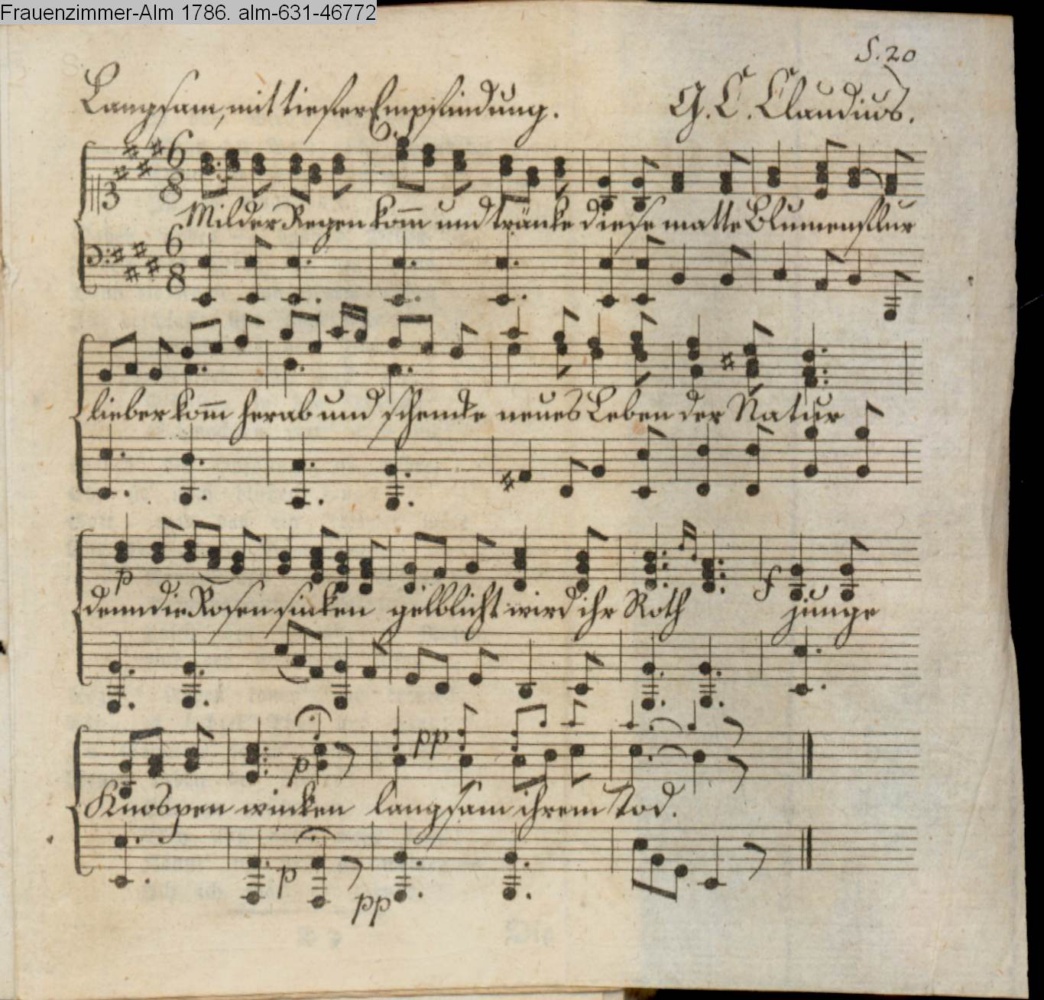 Frauenzimmer-Alm 1786. alm-631-46772
S. 20
Langsam, mit tiefer Empfindung. G. C. Claudius.
6 8
Milder Regen kom̄ und tränke diese matte Blumenflur
6 8
lieber kom̄ herab und schenke neues Leben der Natur
p f
denn die Rosen sinken gelblicht wird ihr Roth junge
p pp
Knospen winken langsam ihrem Tod.
p pp